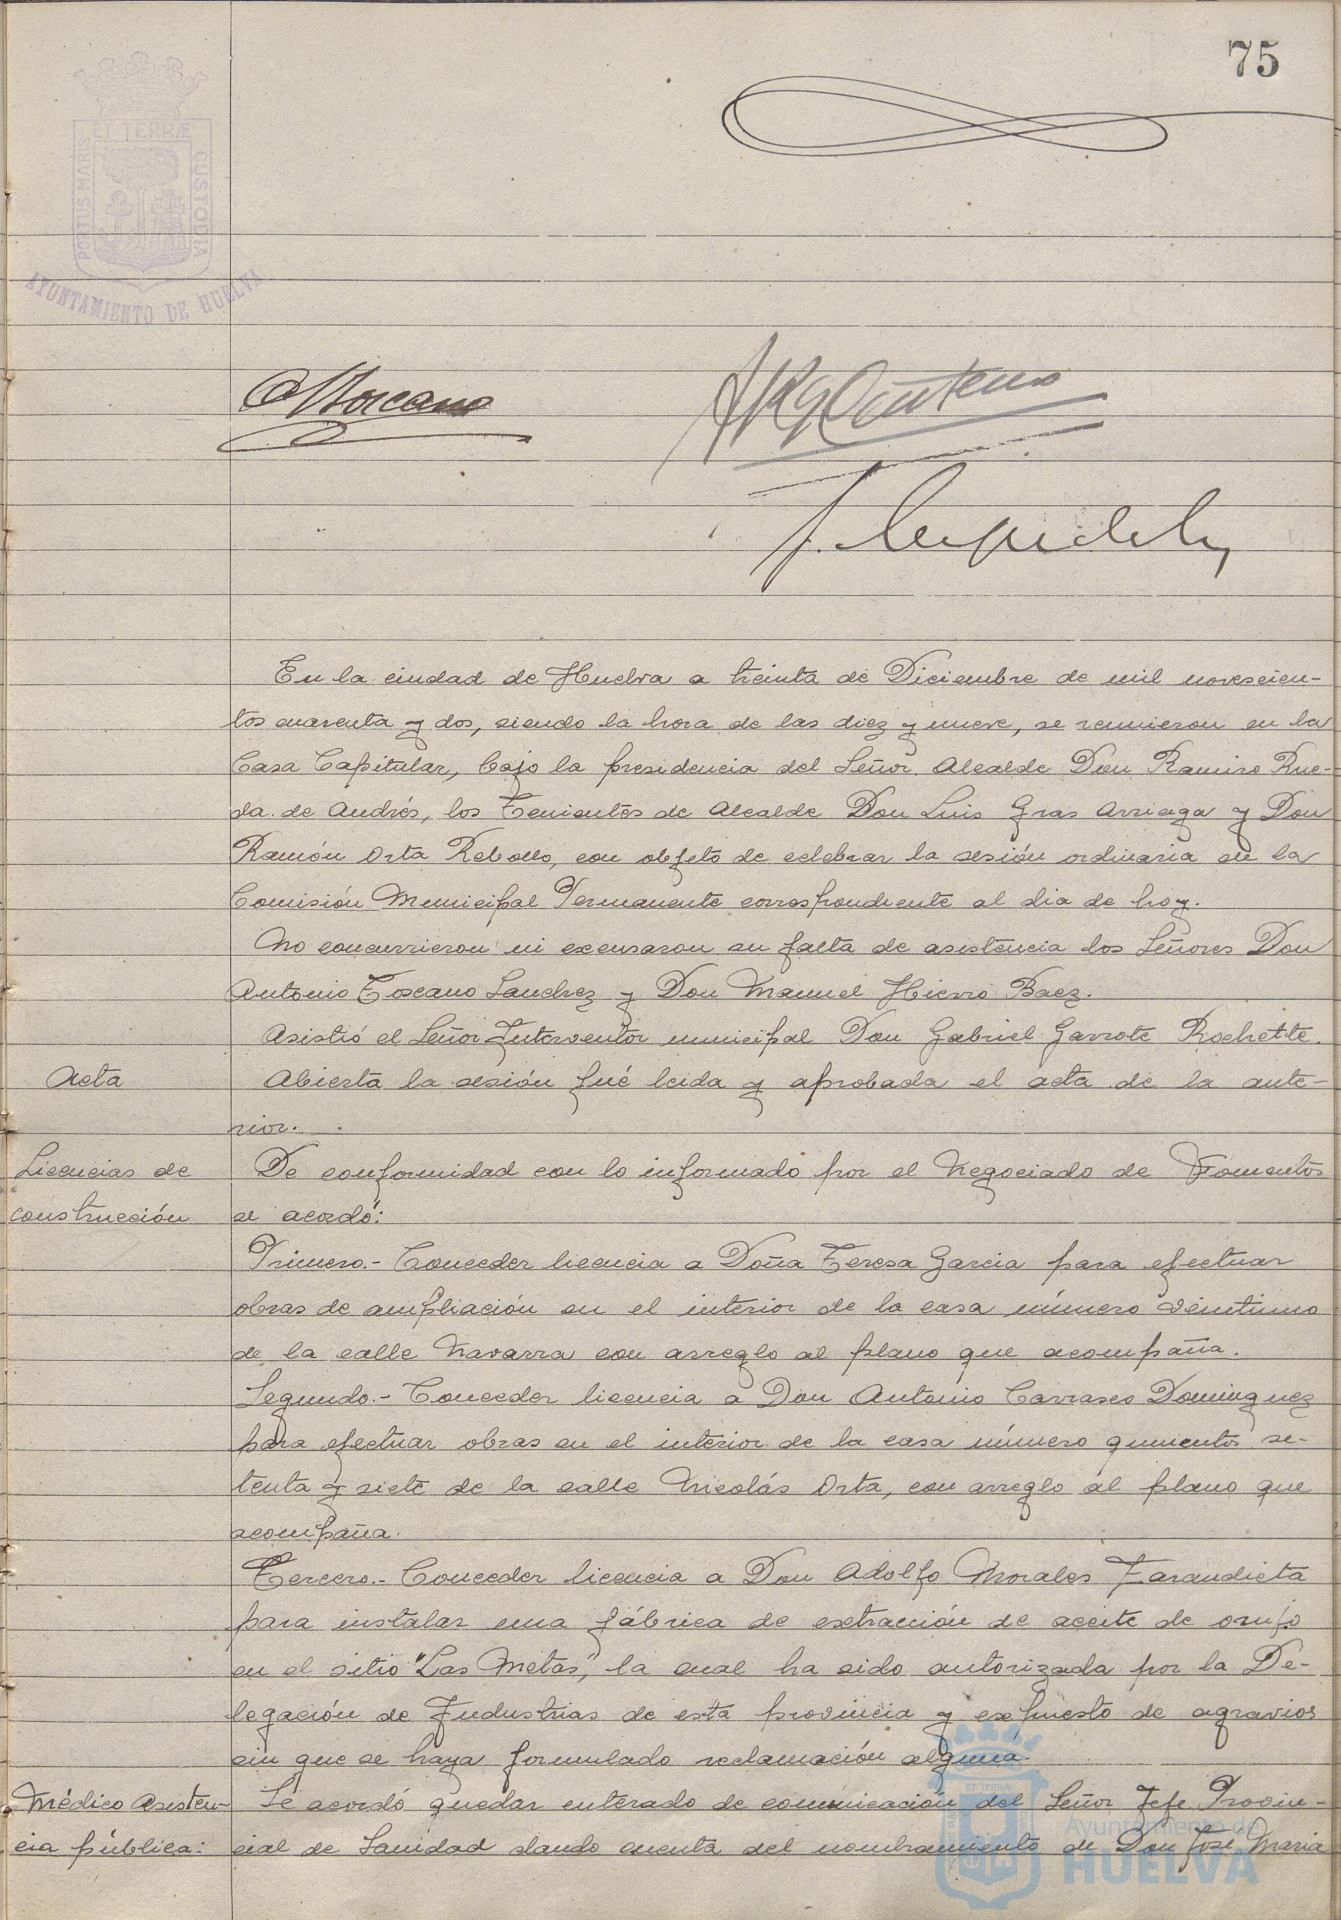 75
PORTUS MARIS ET TERRÆ CUSTODIA
AYUNTAMIENTO DE HUELVA
En la ciudad de Huelva a treinta de Diciembre de mil novescien-
tos cuarenta y dos, siendo la hora de las diez y nueve, se reunieron en la
Casa Capitular, bajo la presidencia del Señor Alcalde Don Ramiro Rue-
da de Andrés, los Tenientes de Alcalde Don Luis Gras Arriaga y Don
Ramón Orta Rebollo, con objeto de celebrar la sesión ordinaria en la
Comisión Municipal Permanente correspondiente al dia de hoy.
No concurrieron ni excusaron su falta de asistencia los Señores Don
Antonio Toscano Sanchez y Don Manuel Hierro Baez.
Asistió el Señor Interventor municipal Don Gabriel Garrote Rochette.
Acta
Abierta la sesión fué leida y aprobada el acta de la ante-
rior.
Licencias de
construcción
De conformidad con lo informado por el Negociado de Fomentos
se acordó:
Primero.- Conceder licencia a Doña Teresa Garcia para efectuar
obras de ampliación en el interior de la casa número veintiuno
de la calle Navarra con arreglo al plano que acompaña.
Segundo.- Conceder licencia a Don Antonio Carrasco Dominguez
para efectuar obras en el interior de la casa número quinientos se-
tenta y siete de la calle Nicolás Orta, con arreglo al plano que
acompaña.
Tercero.- Conceder licencia a Don Adolfo Morales Zarandieta
para instalar una fábrica de extracción de aceite de orujo
en el sitio "Las Metas", la cual ha sido autorizada por la De-
legación de Industrias de esta provincia y expuesto de agravios
sin que se haya formulado reclamación alguna.
Médico Asisten-
cia pública:
Se acordó quedar enterado de comunicación del Señor Jefe Provin-
cial de Sanidad dando cuenta del nombramiento de Don José Maria
ET TERRÆ
Ayuntamiento de
HUELVA